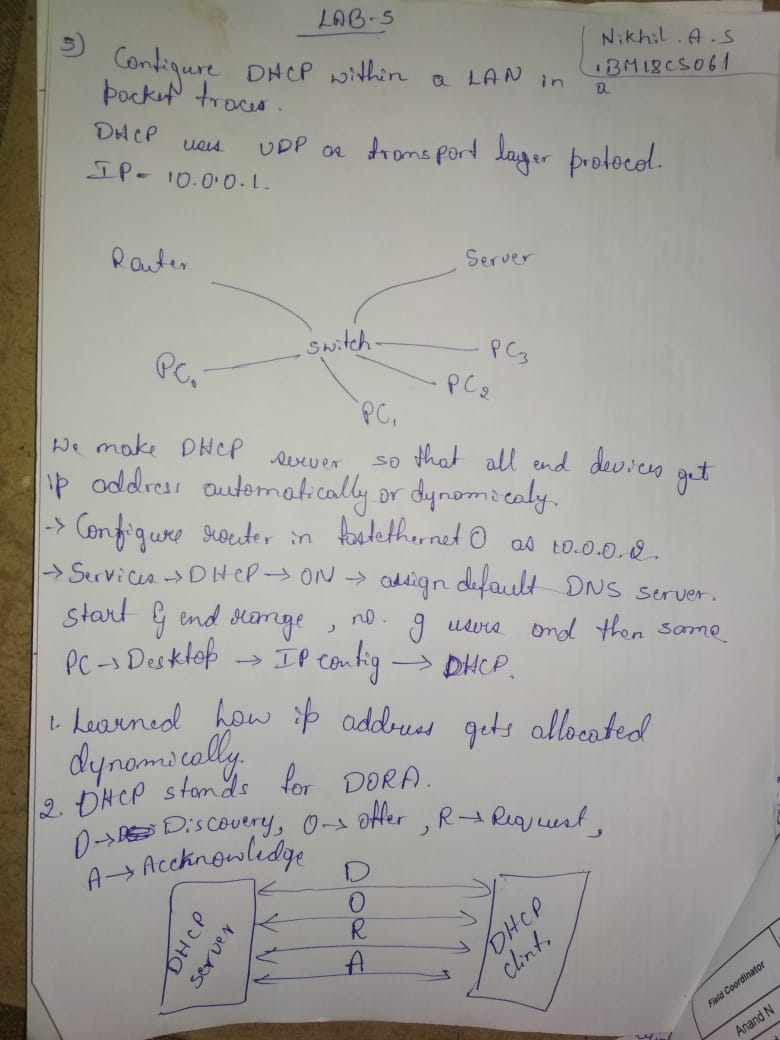 LAB-5
Nikhil. A. S
1BM18CS061
5) Configure DHCP within a LAN in a
packet tracer.
DHCP uses UDP as transport layer protocol.
IP- 10.0.0.1.
Router
Server
switch
PC0
PC3
PC2
PC1
We make DHCP server so that all end devices get
ip address automatically or dynamicaly.
-> Configure router in fastethernet 0 as 10.0.0.2.
-> Services -> DHCP -> ON -> assign default DNS server.
start & end range, no. of users and then same
PC -> Desktop -> IP config -> DHCP.
1. Learned how ip address gets allocated
dynamically.
2. DHCP stands for DORA.
D -> Discovery, O -> offer, R -> Request,
A -> Accknowledge
D
O
R
A
DHCP
server
DHCP
clint.
Field Coordinator
Anand N